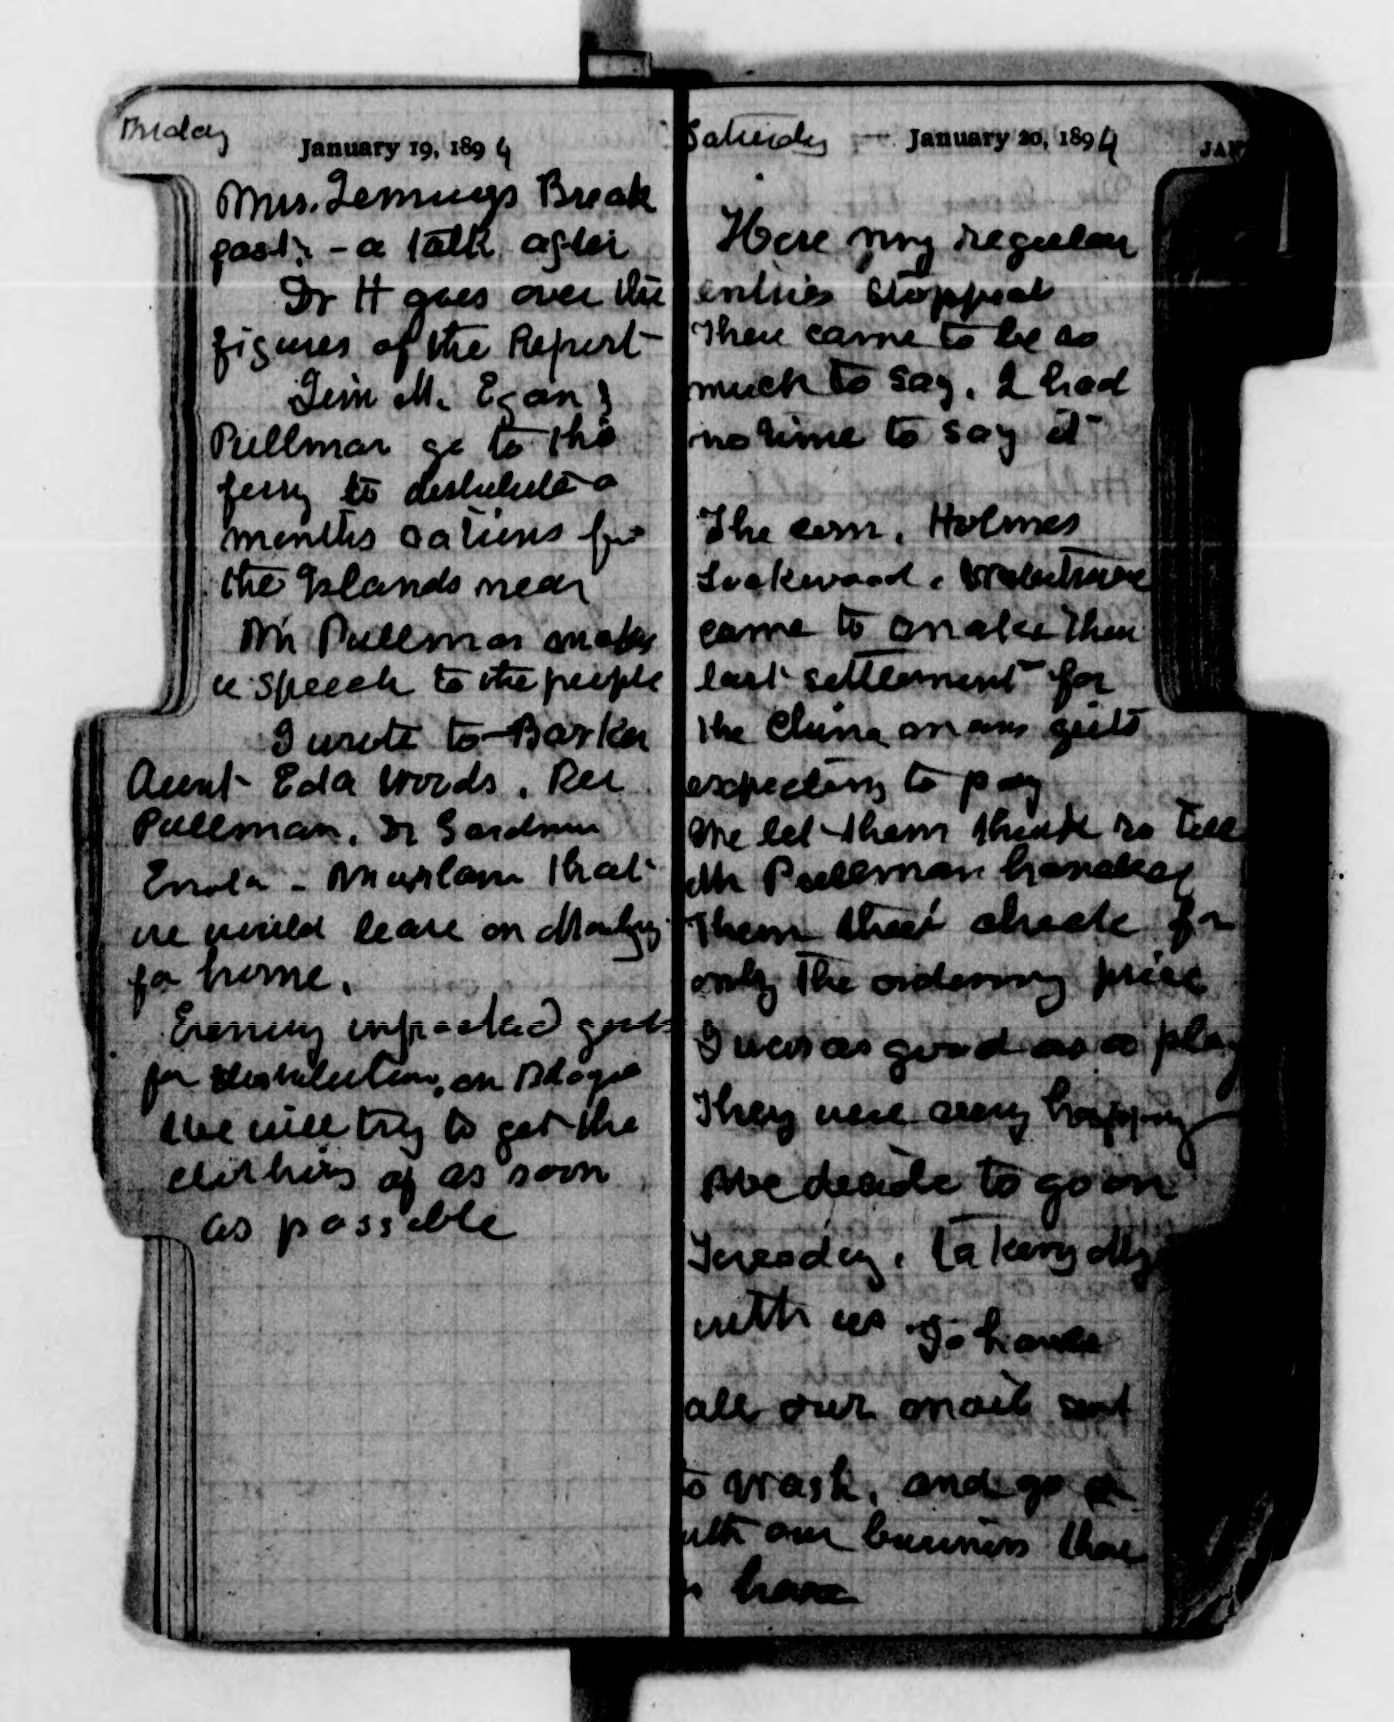 Friday
January 19, 1894
Mrs. Jennings Break
fast; - a talk after
Dr H goes over the
figures of the Report
M. Egan &
Pullman go to the
ferry to distribute a
months rations for
the Islands near
Mr Pullman makes
a speech to the people
I wrote to Barker
Aunt Eda Woods.
Pullman, Dr Gardner
Enola - that
we would leave on Monday
for home.
Evening unpacked goods
for distribution, on
We will try to get the
clothing off as soon
as possible
Saturday January 20, 1894
JAN
Here my regular
entries stopped
There came to be so
much to say, I had
no time to say it
The com. Holmes
Lockwood,
came to make their
last settlement for
the China mans gift
expecting to pay
We let them think so till
Mr Pullman handed
them their check for
only the ordinary price
I was as good as a play
They were very happy
We decide to go on
Tuesday, taking
with us To have
all our mail sent
to Wash. and go on
with our business there